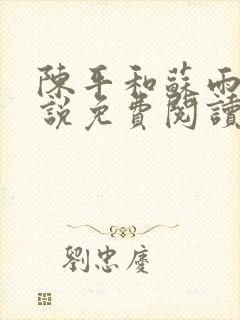 陳平和蘇雨
說免費閱讀
劉忠慶